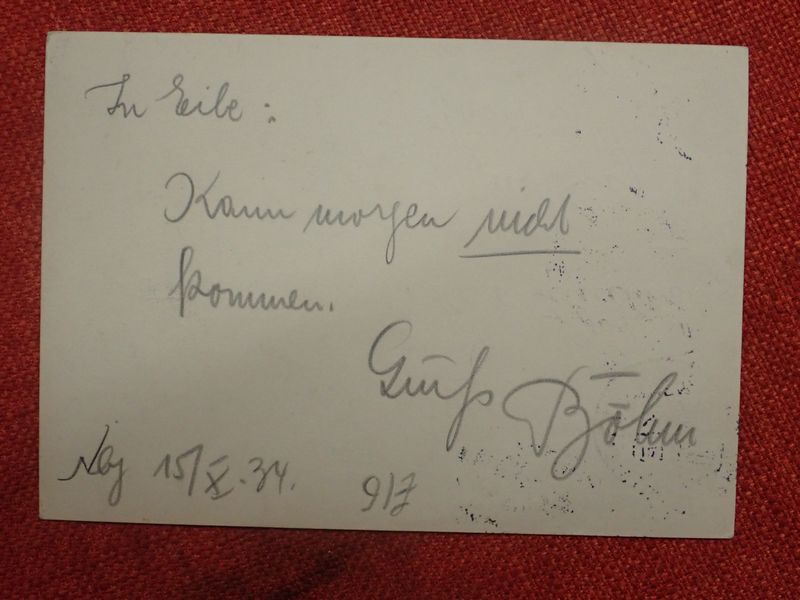 In Eile:
Kann morgen nicht
kommen.
Gruß Böhm
Nbg 15/X.34.